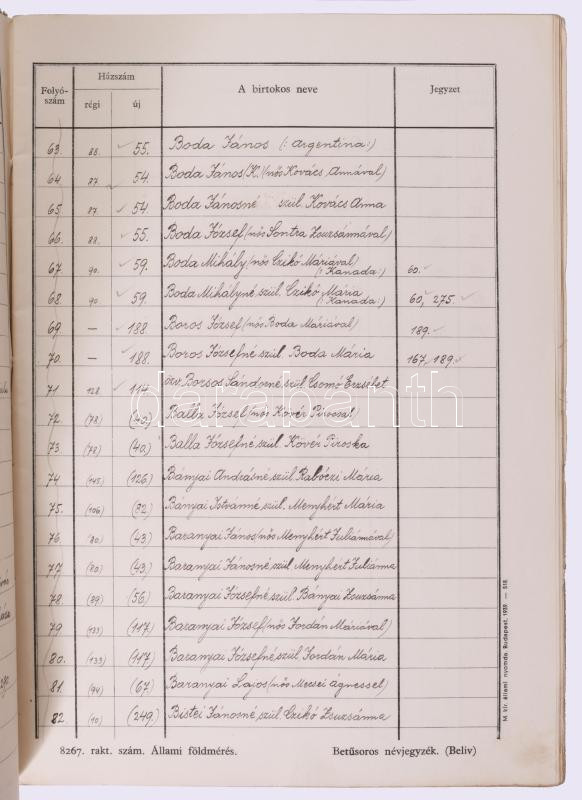 Folyó-
szám
Házszám
régi új
A birtokos neve
Jegyzet
63. 88. 55. Boda János (: Argentina:)
64 87. 54. Boda János (K.) (nős Kovács Annával)
65 87. 54. Boda Jánosné szül. Kovács Anna
66. 88. 55. Boda József (nős Sontra Zsuzsánnával)
67. 90. 59. Boda Mihály (nős Czikó Máriával) 60.
(: Kanada:)
68. 90 59. Boda Mihályné szül. Czikó Mária 60, 275.
(: Kanada:)
69 — 188 Boros József (nős Boda Máriával) 189.
70. — 188. Boros Józsefné szül. Boda Mária 167, 189.
71 128. 114. özv. Borsos Sándorné szül Csomó Erzsébet
72. (78) (40.) Balla József (nős Kövér Piroska)
73 (78) (40.) Balla Józsefné szül. Kövér Piroska
74 (145) (126.) Bányai Andrásné szül. Rabóczi Mária
75. (106) (82.) Bányai Istvánné szül. Menyhért Mária
76. (80) (43.) Baranyai János (nős Menyhért Juliánnával)
77. (80) (43.) Baranyai Jánosné szül Menyhért Juliánna
78. (89) (56) Baranyai Józsefné szül. Bányai Zsuzsánna
79 (133) (117.) Baranyai József (nős Jordán Máriával)
80. (133) (117) Baranyai Józsefné szül Jordán Mária
81. (94) (67.) Baranyai Lajos (nős Mecsei Ágnessel)
82. (10) (249.) Bistei Jánosné szül. Czikó Zsuzsánna
8267. rakt. szám. Állami földmérés. Betűsoros névjegyzék. (Beliv)
M. kir. állami nyomda. Budapest, 1939. — 518
darabanth